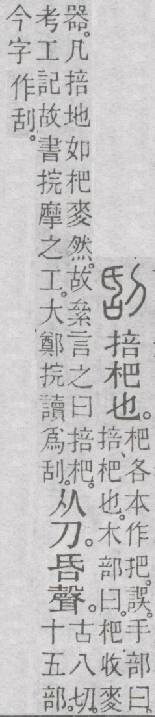 刮 掊杷也。杷各本作把。誤。手部曰
掊、杷也。木部曰。杷、收麥
器。凡掊地如杷麥然。故絫言之曰掊杷。
考工記故書捖摩之工。大鄭捖讀爲刮。
今字作刮。
从刀。昏聲。古八切。
十五部。